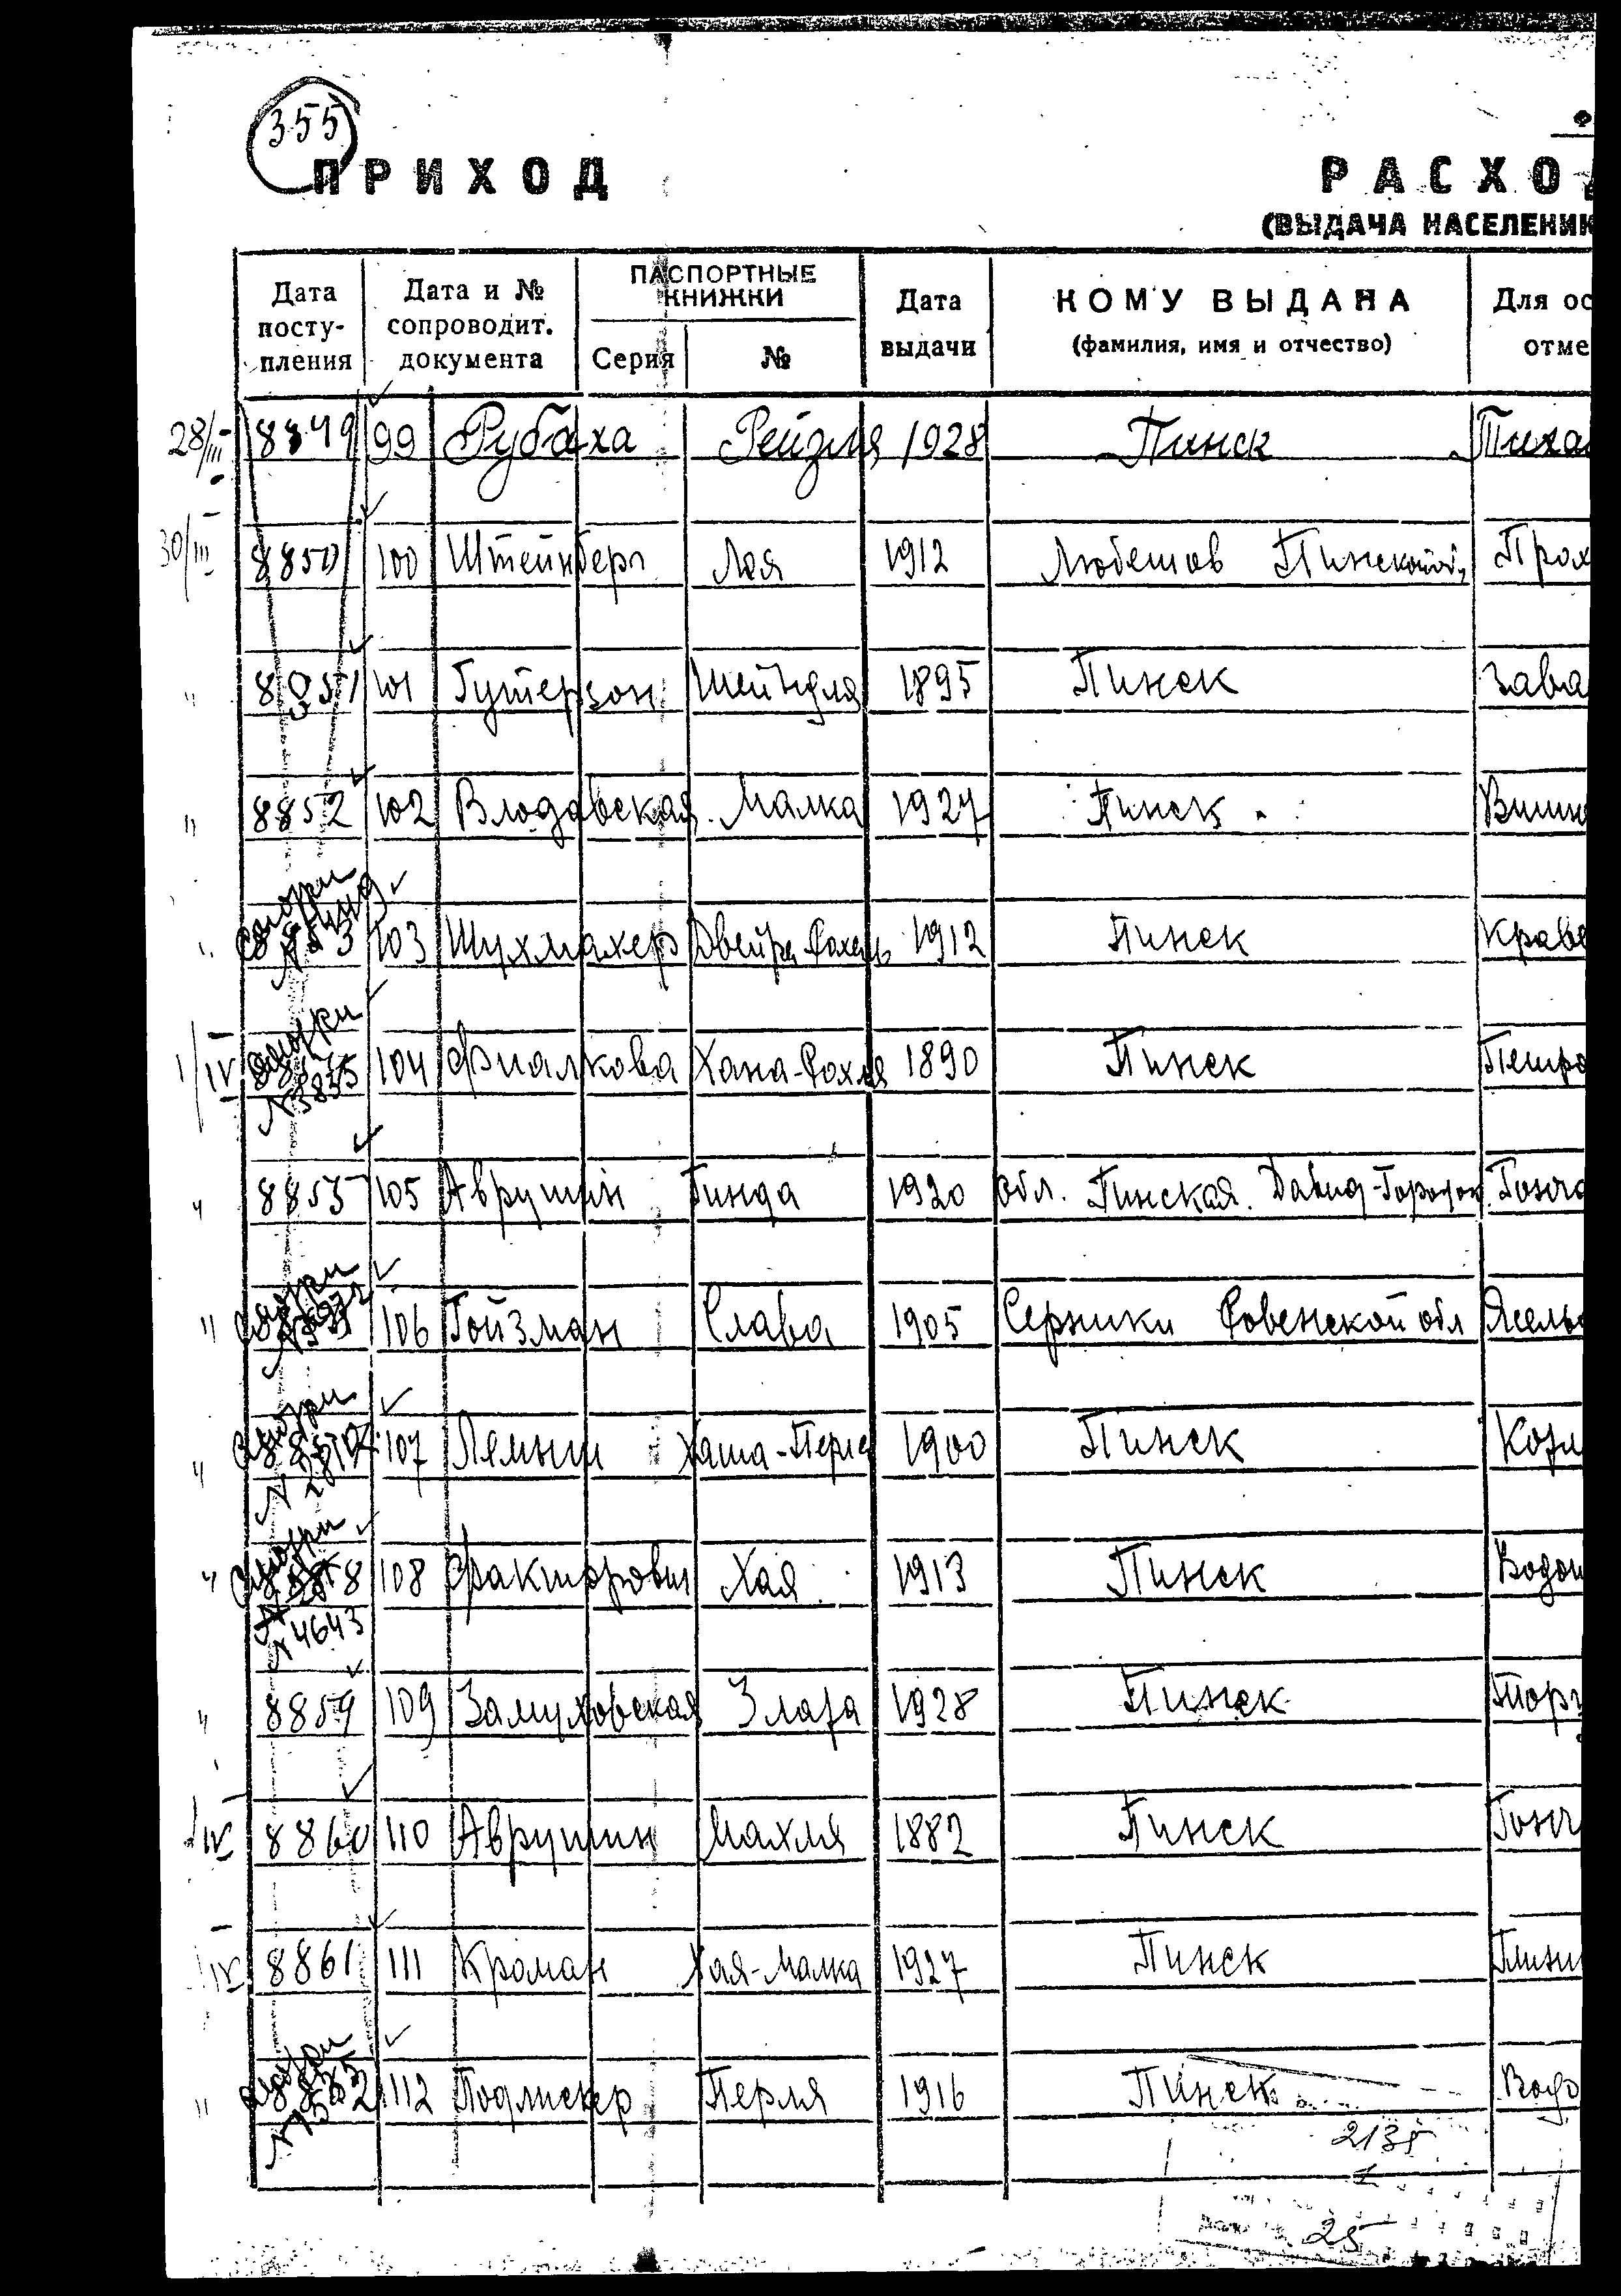 355
Ф
ПРИХОД РАСХОД
(ВЫДАЧА НАСЕЛЕНИЮ
Дата посту-пления Дата и № сопроводит. документа ПАСПОРТНЫЕ КНИЖКИ Серия № Дата выдачи КОМУ ВЫДАНА (фамилия, имя и отчество) Для ос отме
28/III 8849 99 Рубаха Рейзля 1928 Пинск Тиха
30/III 8850 100 Штейнберг Лея 1912 Любешов Пинской об. Прох
" 8851 101 Гутерзон Шейндля 1895 Пинск Зава
" 8852 102 Влодавская Малка 1927 Пинск
" Смотри 103 Шухмахер Двейра Рохель 1912 Пинск Краве
1/IV Смотри N3835 104 Фиалкова Хана-Рохля 1890 Пинск Петро
" 8855 105 Аврутин Гинда 1920 обл. Пинская. Давид-Городок Гонча
" Смотри 106 Гойзман Слава 1905 Серники Ровенской обл Ясель
" Смотри 107 1900 Пинск Козл
" Смотри 8858 N4643 108 Факторович Хая 1913 Пинск Водоп
" 8859 109 Замуховская Злата 1928 Пинск Торг
1/IV 8860 110 Аврутин Махля 1882 Пинск Гонч
1/IV 8861 111 Кроман Хая-Малка 1927 Пинск
" Смотри 112 Подлискер Перля 1916 Пинск Водо
2135
25